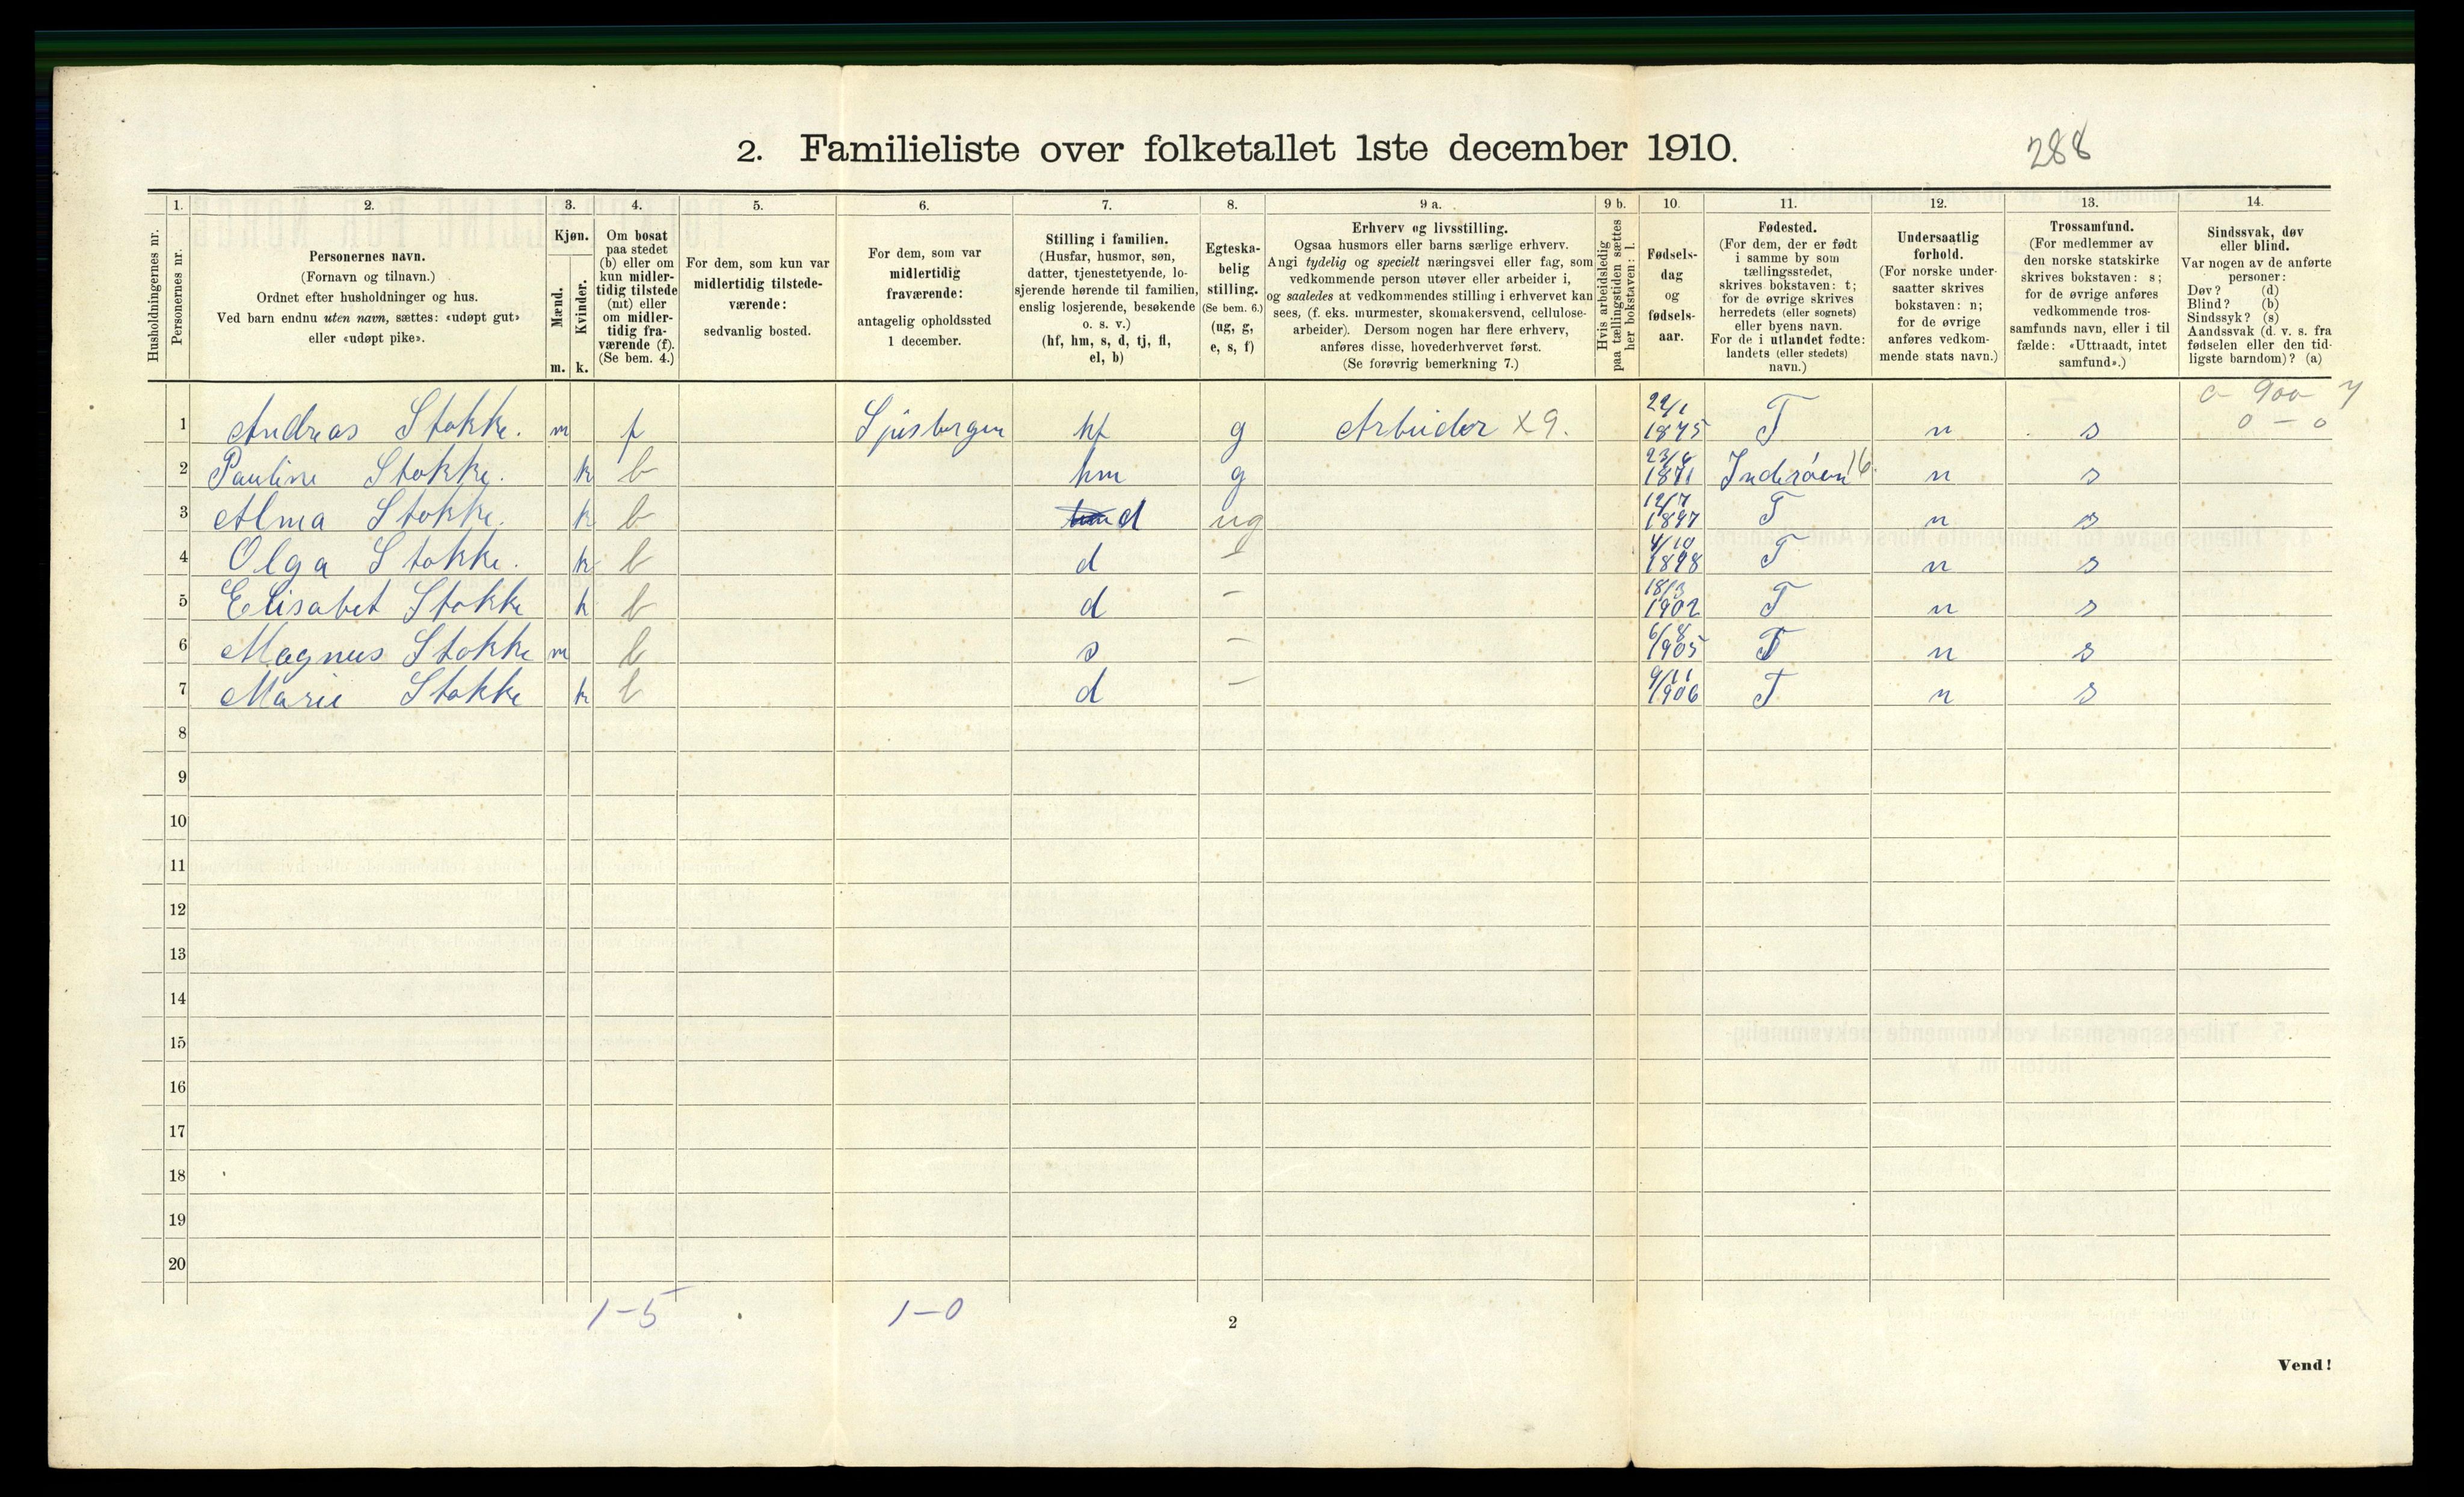 2. Familieliste over folketallet 1ste december 1910.
288
Husholdningernes nr.
1. Personernes nr.
2. Personernes navn.
(Fornavn og tilnavn.)
Ordnet efter husholdninger og hus.
Ved barn endnu uten navn, sættes: «udøpt gut»
eller «udøpt pike».
3. Kjøn.
Mænd. m.
Kvinder. k.
4. Om bosat
paa stedet
(b) eller om
kun midler-
tidig tilstede
(mt) eller
om midler-
tidig fra-
værende (f).
(Se bem. 4.)
5. For dem, som kun var
midlertidig tilstede-
værende:
sedvanlig bosted.
6. For dem, som var
midlertidig
fraværende:
antagelig opholdssted
1 december.
7. Stilling i familien.
(Husfar, husmor, søn,
datter, tjenestetyende, lo-
sjerende hørende til familien,
enslig losjerende, besøkende
o. s. v.)
(hf, hm, s, d, tj, fl,
el, b)
8. Egteska-
belig
stilling.
(Se bem. 6.)
(ug, g,
e, s, f)
9 a. Erhverv og livsstilling.
Ogsaa husmors eller barns særlige erhverv.
Angi tydelig og specielt næringsvei eller fag, som
vedkommende person utøver eller arbeider i,
og saaledes at vedkommendes stilling i erhvervet kan
sees, (f. eks. murmester, skomakersvend, cellulose-
arbeider). Dersom nogen har flere erhverv,
anføres disse, hovederhvervet først.
(Se forøvrig bemerkning 7.)
9 b. Hvis arbeidsledig
paa tællingstiden sættes
her bokstaven: l.
10. Fødsels-
dag
og
fødsels-
aar.
11. Fødested.
(For dem, der er født
i samme by som
tællingsstedet,
skrives bokstaven: t;
for de øvrige skrives
herredets (eller sognets)
eller byens navn.
For de i utlandet fødte:
landets (eller stedets)
navn.)
12. Undersaatlig
forhold.
(For norske under-
saatter skrives
bokstaven: n;
for de øvrige
anføres vedkom-
mende stats navn.)
13. Trossamfund.
(For medlemmer av
den norske statskirke
skrives bokstaven: s;
for de øvrige anføres
vedkommende tros-
samfunds navn, eller i til-
fælde: «Uttraadt, intet
samfund».)
14. Sindssvak, døv
eller blind.
Var nogen av de anførte
personer:
Døv? (d)
Blind? (b)
Sindssyk? (s)
Aandssvak (d. v. s. fra
fødselen eller den tid-
ligste barndom)? (a)
0 – 0
1 Andreas Stokke. m f Spisbergen hf g Arbeider x 9. 22/1 1875 T n s
2 Pauline Stokke. k b hm g 1871 Inderöen 16. n s
3 Alma Stokke. k b d ug 12/7 1897 T n s
4 Olga Stokke. k b d – 4/10 1898 T n s
5 Elisabet Stokke k b d – 18/3 1902 T n s
6 Magnus Stokke m b s – 6/8 1905 T n s
7 Marie Stokke k b d – 9/11 1906 T n s
8
9
10
11
12
13
14
15
16
17
18
19
20
1–5
1–0
2
Vend!